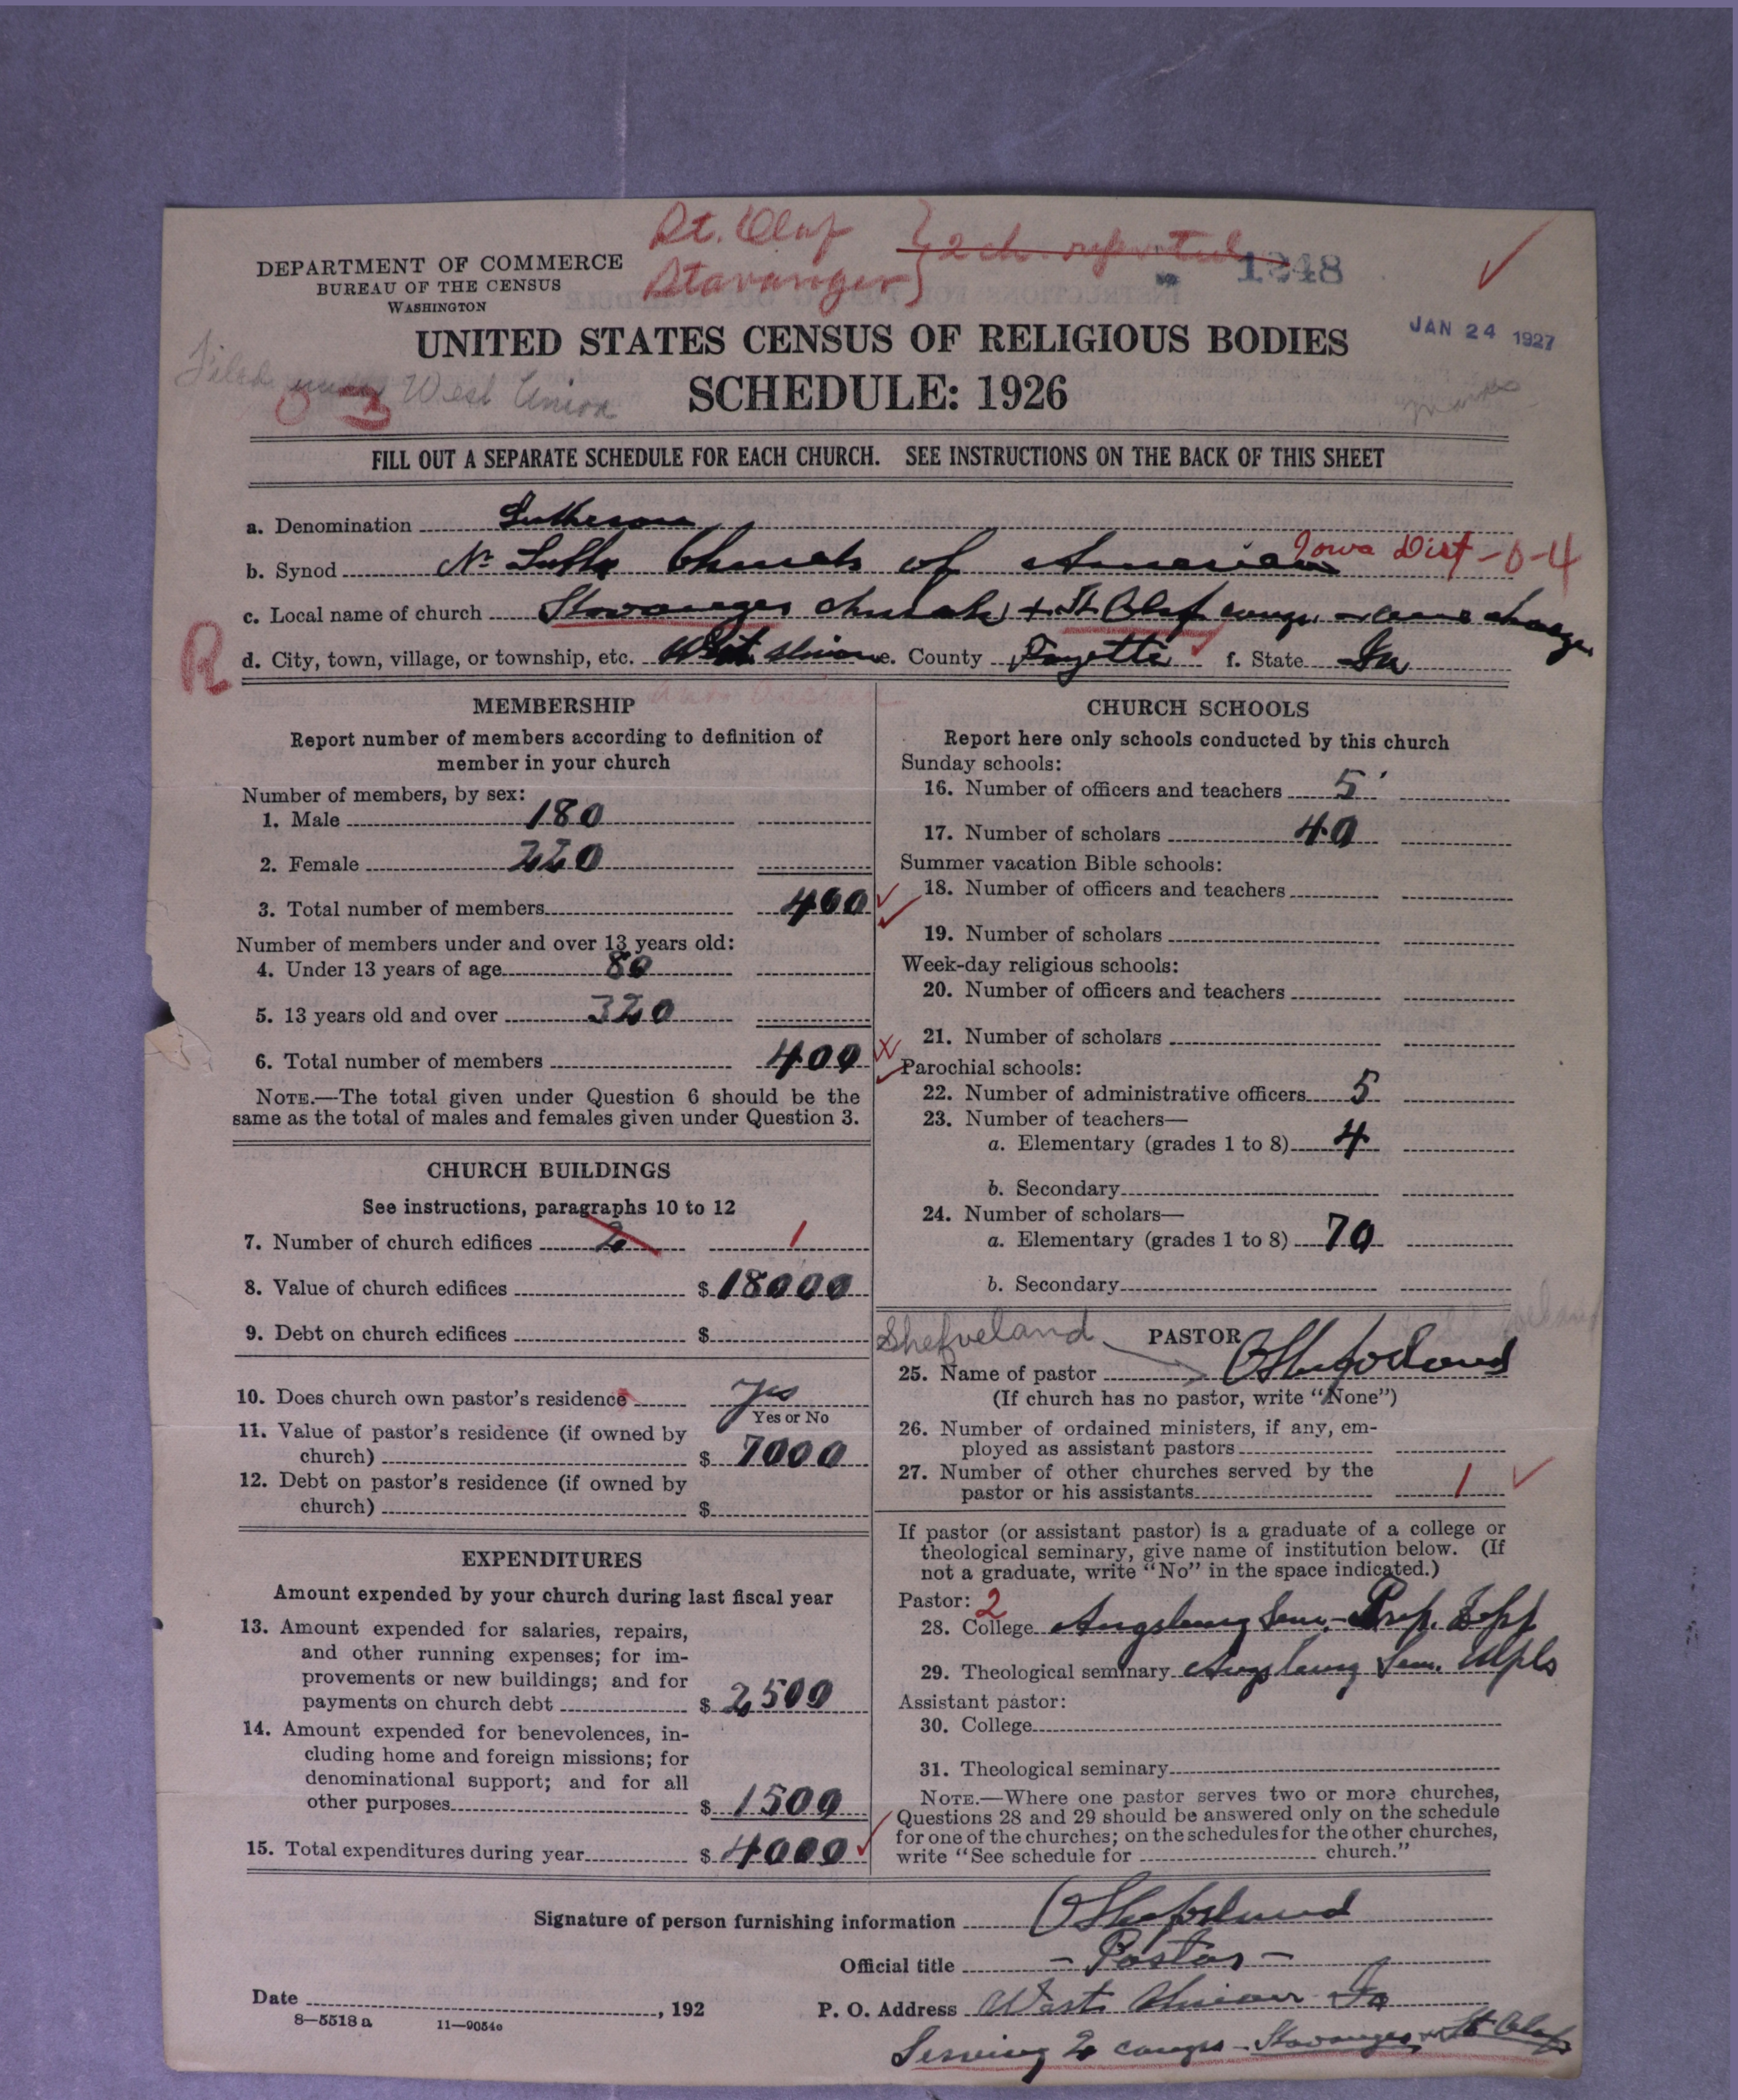 St. Olaf
Stavanger } 2 ch. reported
1248
DEPARTMENT OF COMMERCE
BUREAU OF THE CENSUS
WASHINGTON
UNITED STATES CENSUS OF RELIGIOUS BODIES
JAN 24 1927
Filed under West Union
SCHEDULE: 1926
FILL OUT A SEPARATE SCHEDULE FOR EACH CHURCH. SEE INSTRUCTIONS ON THE BACK OF THIS SHEET
a. Denomination Lutheran
b. Synod Nr Luth Church of America Iowa Dist -0-4
c. Local name of church Stavanger church + St Olaf cong. charge
R
d. City, town, village, or township, etc. West Union e. County Fayette f. State Ia
MEMBERSHIP
Report number of members according to definition of
member in your church
Number of members, by sex:
1. Male 180
2. Female 220
3. Total number of members 400
Number of members under and over 13 years old:
4. Under 13 years of age 80
5. 13 years old and over 320
6. Total number of members 400
NOTE.—The total given under Question 6 should be the
same as the total of males and females given under Question 3.
CHURCH BUILDINGS
See instructions, paragraphs 10 to 12
7. Number of church edifices 2 1
8. Value of church edifices $ 18000
9. Debt on church edifices $
10. Does church own pastor's residence yes
Yes or No
11. Value of pastor's residence (if owned by
church) $ 7000
12. Debt on pastor's residence (if owned by
church) $
EXPENDITURES
Amount expended by your church during last fiscal year
13. Amount expended for salaries, repairs,
and other running expenses; for im-
provements or new buildings; and for
payments on church debt $ 2500
14. Amount expended for benevolences, in-
cluding home and foreign missions; for
denominational support; and for all
other purposes $ 1500
15. Total expenditures during year $ 4000
CHURCH SCHOOLS
Report here only schools conducted by this church
Sunday schools:
16. Number of officers and teachers 5
17. Number of scholars 40
Summer vacation Bible schools:
18. Number of officers and teachers
19. Number of scholars
Week-day religious schools:
20. Number of officers and teachers
21. Number of scholars
Parochial schools:
22. Number of administrative officers 5
23. Number of teachers—
a. Elementary (grades 1 to 8) 4
b. Secondary
24. Number of scholars—
a. Elementary (grades 1 to 8) 70
b. Secondary
Shefveland PASTOR
25. Name of pastor O Shefveland
(If church has no pastor, write "None")
26. Number of ordained ministers, if any, em-
ployed as assistant pastors
27. Number of other churches served by the
pastor or his assistants 1
If pastor (or assistant pastor) is a graduate of a college or
theological seminary, give name of institution below. (If
not a graduate, write "No" in the space indicated.)
Pastor: 2
28. College Augsburg Sem. - Prep.
29. Theological seminary Augsburg Sem. Mpls
Assistant pastor:
30. College
31. Theological seminary
NOTE.—Where one pastor serves two or more churches,
Questions 28 and 29 should be answered only on the schedule
for one of the churches; on the schedules for the other churches,
write "See schedule for church."
Signature of person furnishing information O Shefveland
Official title - Pastor -
Date , 192
P. O. Address West Union Ia
8—5518 a 11—9054c
Serving 2 congrs - Stavanger St Olaf